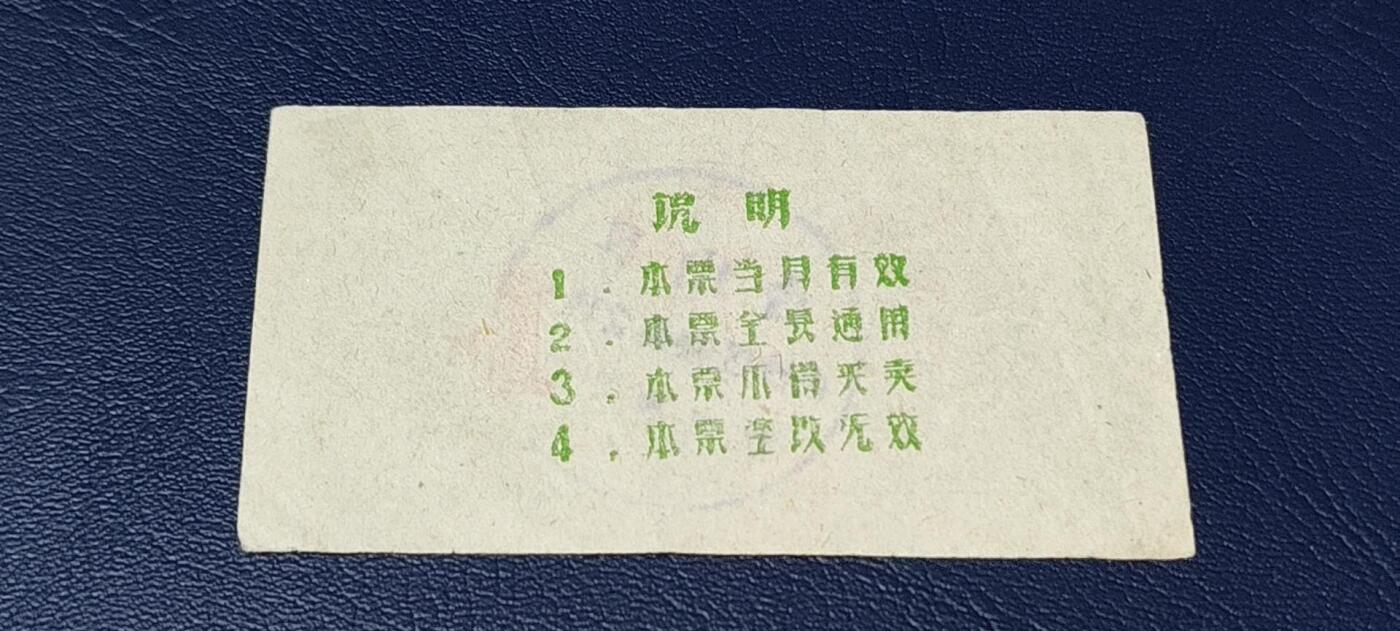 说 明
1. 本票当月有效
2. 本票全县通用
3. 本票不得买卖
4. 本票涂改无效